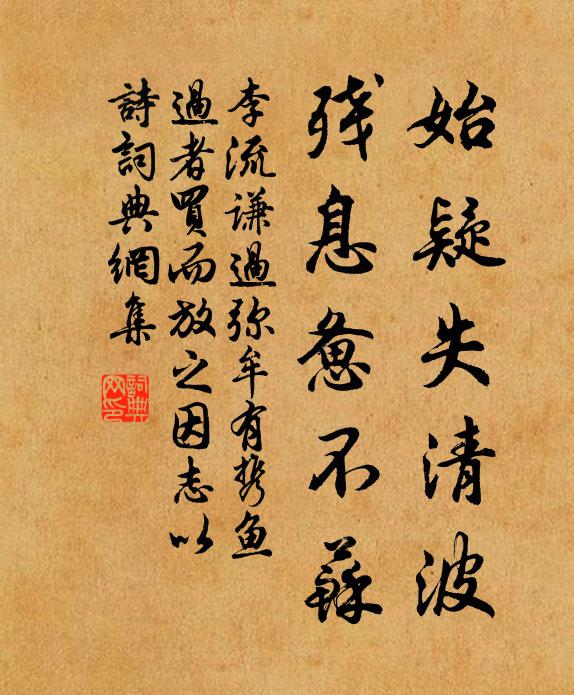 始疑失清波
残息惫不蘇
李流謙過弥牟有携鱼
過者買而放之因志以
詩詞典網集
詞典
网印